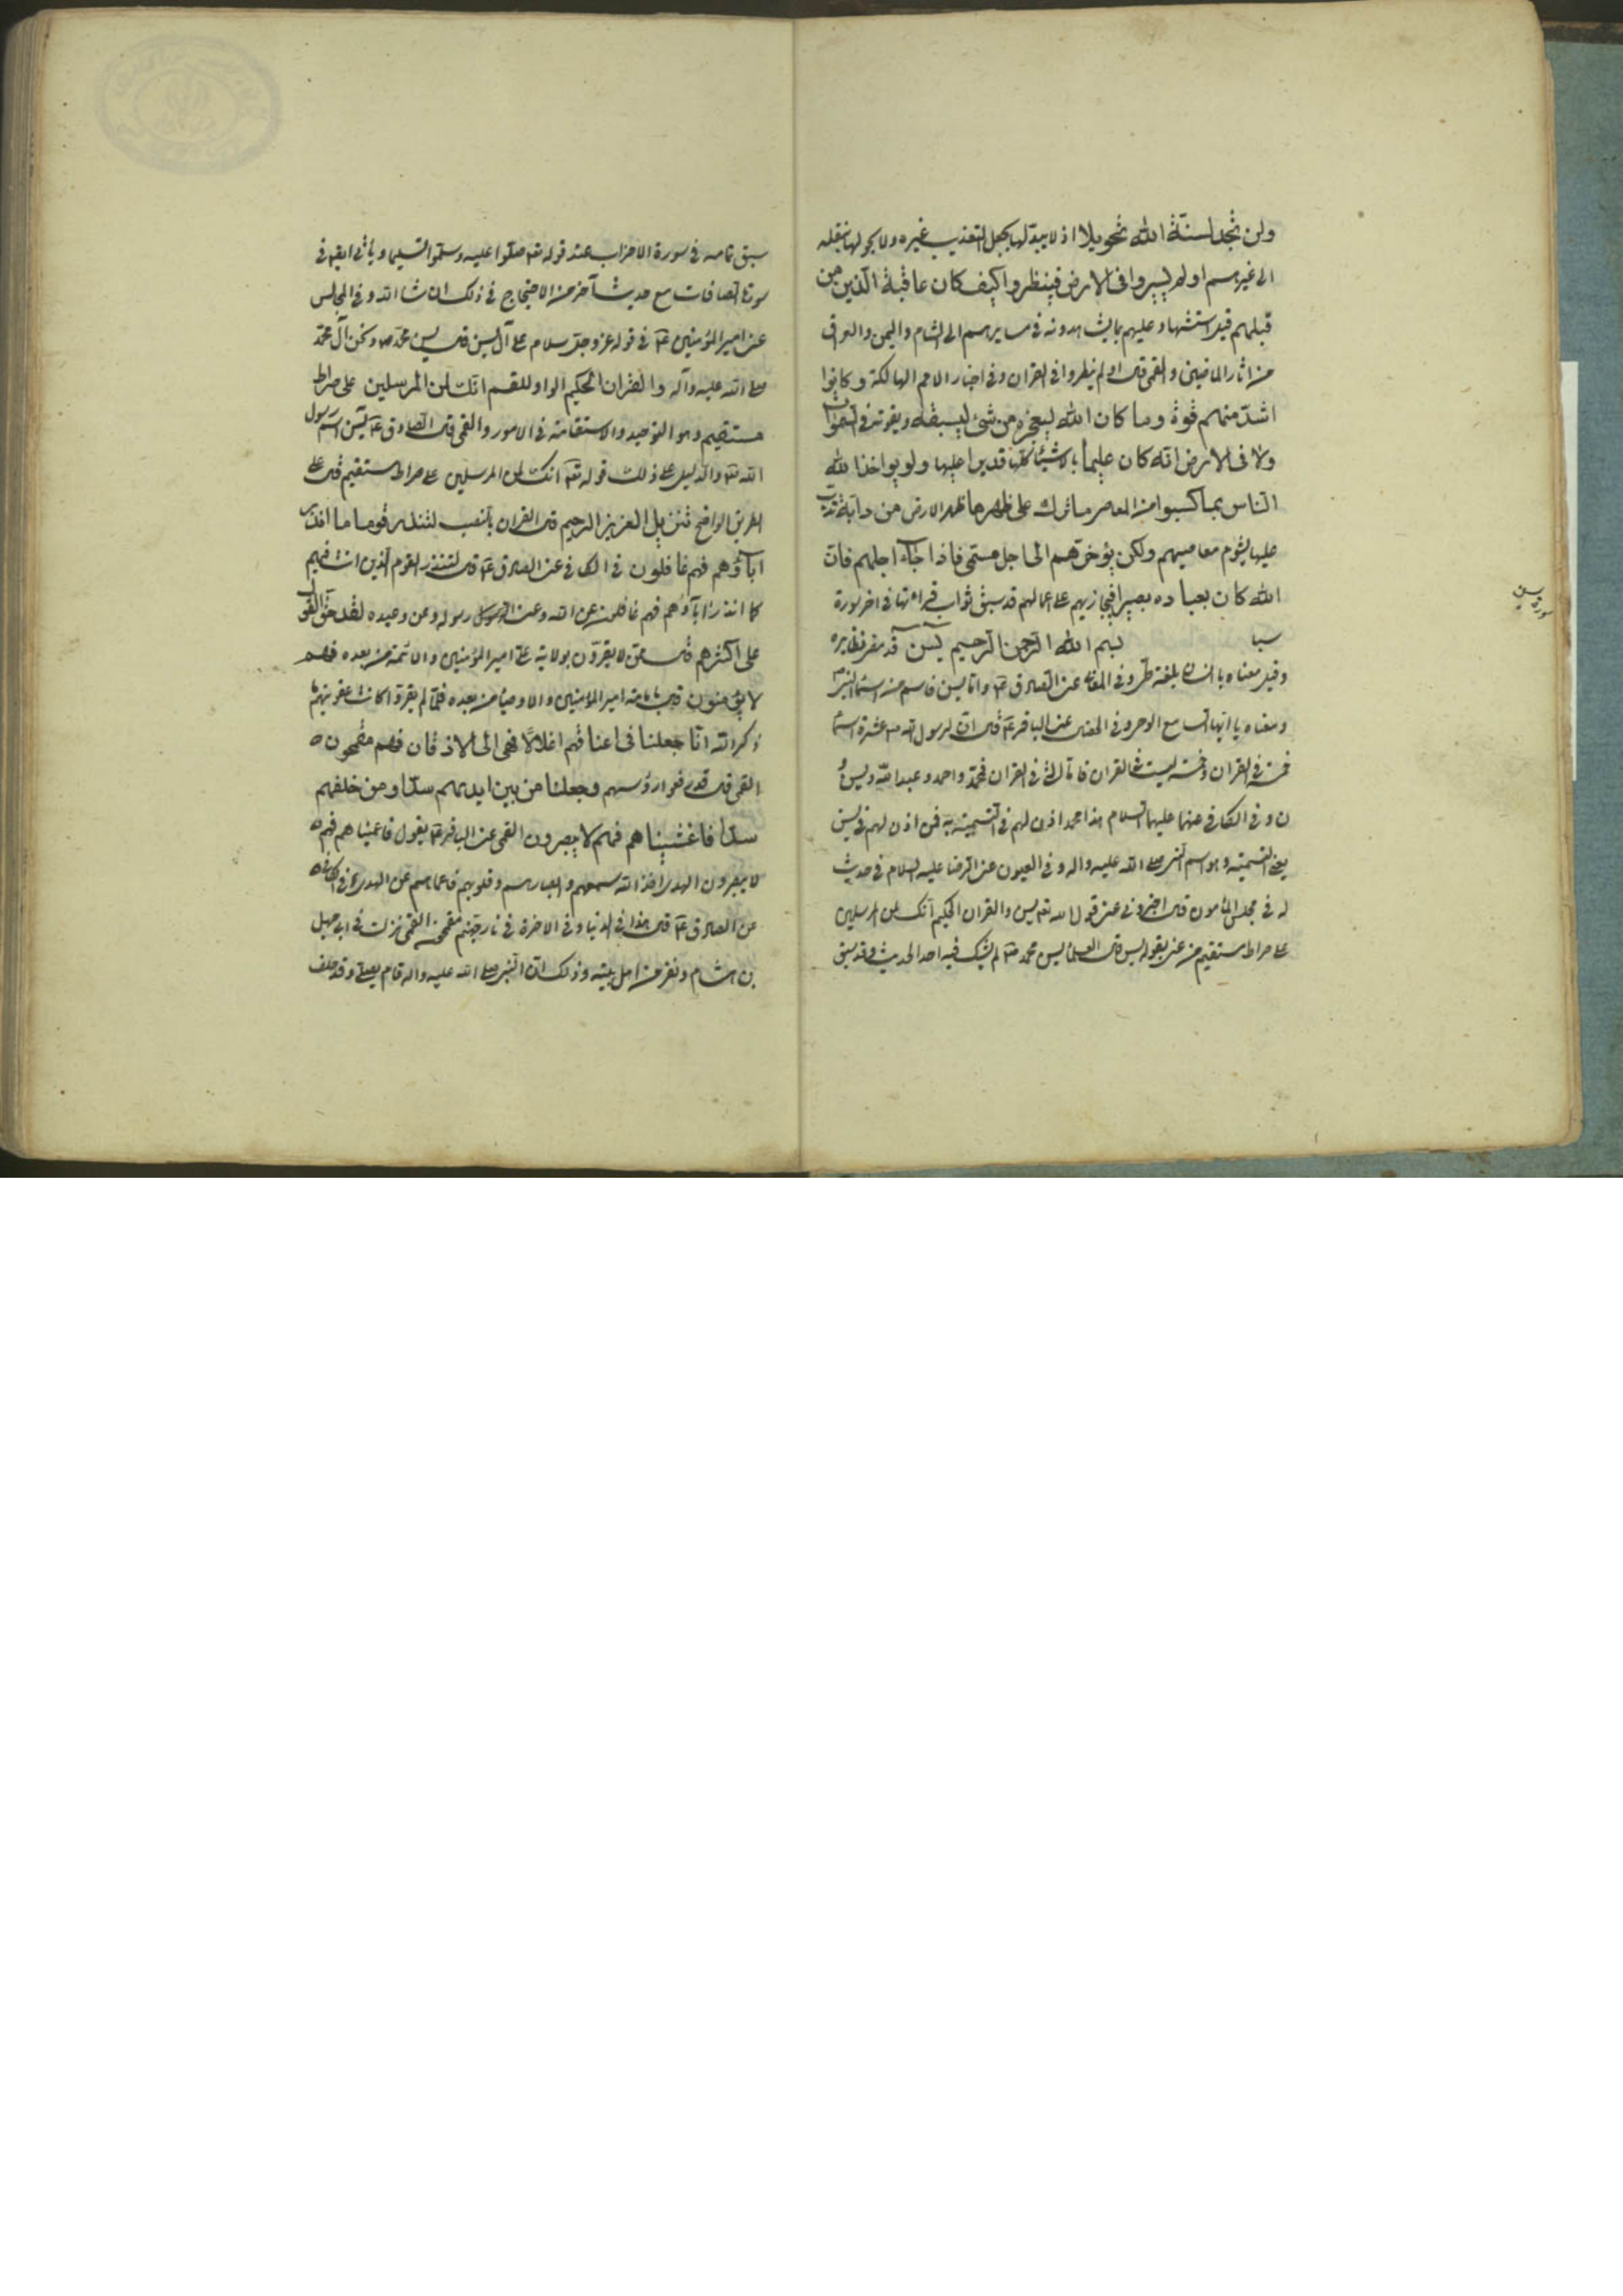 ولن تجد لسنة الله تحويلا اذ لا يبدلها بجعل التعذيب غيره ولا يحولها بنقله
الى غيرهم اولم يسيروا فى الارض فينظروا كيف كان عاقبة الذين من
قبلهم قيل استشهاد عليهم بما يشاهدونه في مسايرهم الى الشام واليمن والعراق
من اثار الماضين والقمي قال اولم ينظروا في القران وفي اخبار الامم الهالكة وكانوا
اشدّ منهم قوة وما كان الله ليعجزه من شئ ليسبقه ويفوته فى السموات
ولا فى الارض انه كان عليما بالاشياء كلها قديرا عليها ولو يواخذ الله
الناس بما كسبوا من المعاصر ما ترك على ظهرها ظهر الارض من دابة تدب
عليها بشوم معاصيهم ولكن يؤخرهم الى اجل مسمى فاذا جاء اجلهم فان
الله كان بعباده بصيرا فيجازيهم على اعمالهم قد سبق ثواب قراءتها في اخر سورة
سبا بسم الله الرحمن الرحيم يس قد مر نظايره
وقيل معناه يا انسان بلغة طى وفي المعاني عن الصادق ع واما يس فاسم من اسماء النبي ص
ومعناه يا ايها السامع الوحى وفي الخصال عن الباقر ع قال ان لرسول الله ص عشرة اسماء
خمسة في القران وخمسة ليست في القران فاما التي في القران فمحمد واحمد وعبد الله ويس و
ن وفي الكافي عنهما عليهما السلام هذا محمد اذن لهم في التسمية به فمن اذن لهم في يس
يعني التسمية وهو اسم النبي صلى الله عليه واله وفي العيون عن الرضا عليه السلام في حديث
له في مجلس المأمون قال اخبروني عن قول الله تعم يس والقران الحكيم انك لمن المرسلين
على صراط مستقيم فمن عنى بقوله يس قال العلماء يس محمد ص لم يشك فيه احد الحديث وقد سبق
سورة يس
سبق تمامه في سورة الاحزاب عند قوله تعم صلوا عليه وسلموا تسليما وياتي ايضا في
سورة الصافات مع حديث آخر من الاحتجاج في ذلك ان شاء الله وفي المجالس
عن امير المؤمنين ع في قوله عز وجل سلام على آل يس قال يس محمد ص ونحن آل محمد
صلى الله عليه وآله والقران الحكيم الواو للقسم انك لمن المرسلين على صراط
مستقيم وهو التوحيد والاستقامة في الامور والقمي قال الصادق ع يس اسم رسول
الله ص والدليل على ذلك قوله تعم انك لمن المرسلين على صراط مستقيم قال على
الطريق الواضح تنزيل العزيز الرحيم قال القران بالنصب لتنذر قوما ما انذر
اباؤهم فهم غافلون في الكافي عن الصادق ع قال لتنذر القوم الذين انت فيهم
كما انذر اباؤهم فهم غافلون عن الله وعن رسوله وعن وعيده لقد حق القول
على اكثرهم قال ممن لا يقرون بولاية على امير المؤمنين والائمة من بعده فهم
لا يؤمنون قال بامامة امير المؤمنين والاوصياء من بعده فلما لم يقروا كانت عقوبتهم ما
ذكر الله انا جعلنا فى اعناقهم اغلالا فهى الى الاذقان فهم مقمحون
القمي قال قد رفعوا رؤسهم وجعلنا من بين ايديهم سدا ومن خلفهم
سدا فاغشيناهم فهم لا يبصرون القمي عن الباقر ع يقول فاعميناهم فهم
لا يبصرون الهدى اخذ الله سمعهم وابصارهم وقلوبهم فاعماهم عن الهدى وفي الكافي
عن الصادق ع قال هذا في الدنيا وفي الاخرة في نار جهنم مقمحون القمي نزلت في ابي جهل
بن هشام ونفر من اهل بيته وذلك ان النبي صلى الله عليه واله قام يصلي وقد حلف